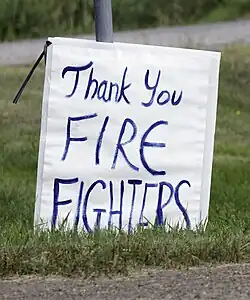 Thank You
FIRE
FIGHTERS